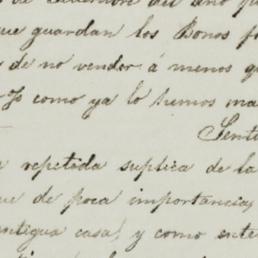 de Diciembre del año p
que guardan los Bonos fo
de no vender á menos q
como ya lo hemos ma
Senti
repetida suplica de la
que de poca importancia,
antigua casa, y como ente